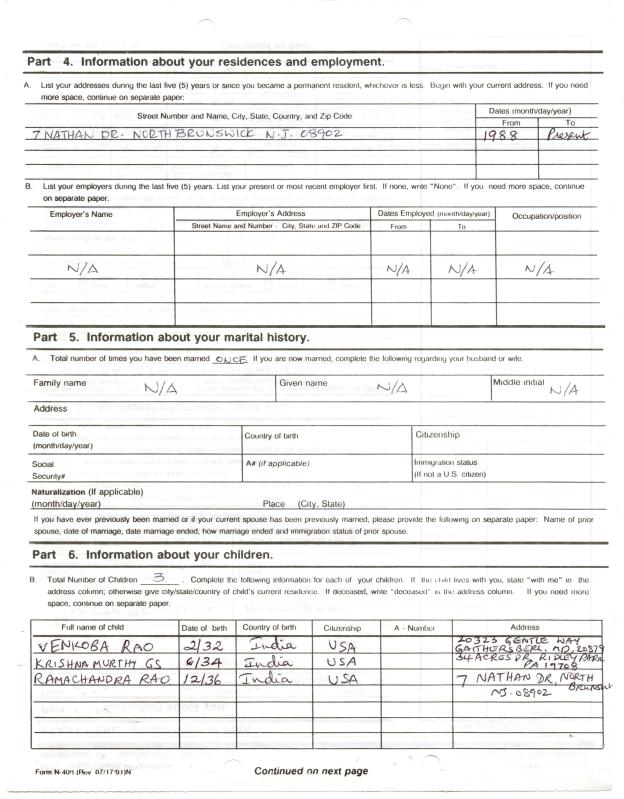 Part 4. Information about your residences and employment.
A. List your addresses during the last five (5) years or since you became a permanent resident, whichever is less. Begin with your current address. If you need
more space, continue on separate paper:
Street Number and Name, City, State, Country, and Zip Code
Dates (month/day/year)
From To
7 NATHAN DR. NORTH BRUNSWICK N.J. 08902 1988 Present
B. List your employers during the last five (5) years. List your present or most recent employer first. If none, write "None". If you need more space, continue
on separate paper.
Employer's Name Employer's Address Dates Employed (month/day/year) Occupation/position
Street Name and Number - City, State and ZIP Code From To
N/A N/A N/A N/A N/A
Part 5. Information about your marital history.
A. Total number of times you have been married ONCE. If you are now married, complete the following regarding your husband or wife.
Family name N/A Given name N/A Middle initial N/A
Address
Date of birth Country of birth Citizenship
(month/day/year)
Social A# (if applicable) Immigration status
Security# (If not a U.S. citizen)
Naturalization (If applicable)
(month/day/year) Place (City, State)
If you have ever previously been married or if your current spouse has been previously married, please provide the following on separate paper: Name of prior
spouse, date of marriage, date marriage ended, how marriage ended and immigration status of prior spouse.
Part 6. Information about your children.
B. Total Number of Children 3. Complete the following information for each of your children. If the child lives with you, state "with me" in the
address column; otherwise give city/state/country of child's current residence. If deceased, write "deceased" in the address column. If you need more
space, continue on separate paper.
Full name of child Date of birth Country of birth Citizenship A - Number Address
VENKOBA RAO 2/32 India USA 20323 GENTLE WAY
GAITHERSBERG, MD, 20879
KRISHNA MURTHY GS 6/34 India USA 34 ACRES DR, RIDLEY PARK
PA 19708
RAMACHANDRA RAO 12/36 India USA 7 NATHAN DR, NORTH
NJ. 08902
Form N-400 (Rev 07/17/91)N Continued on next page